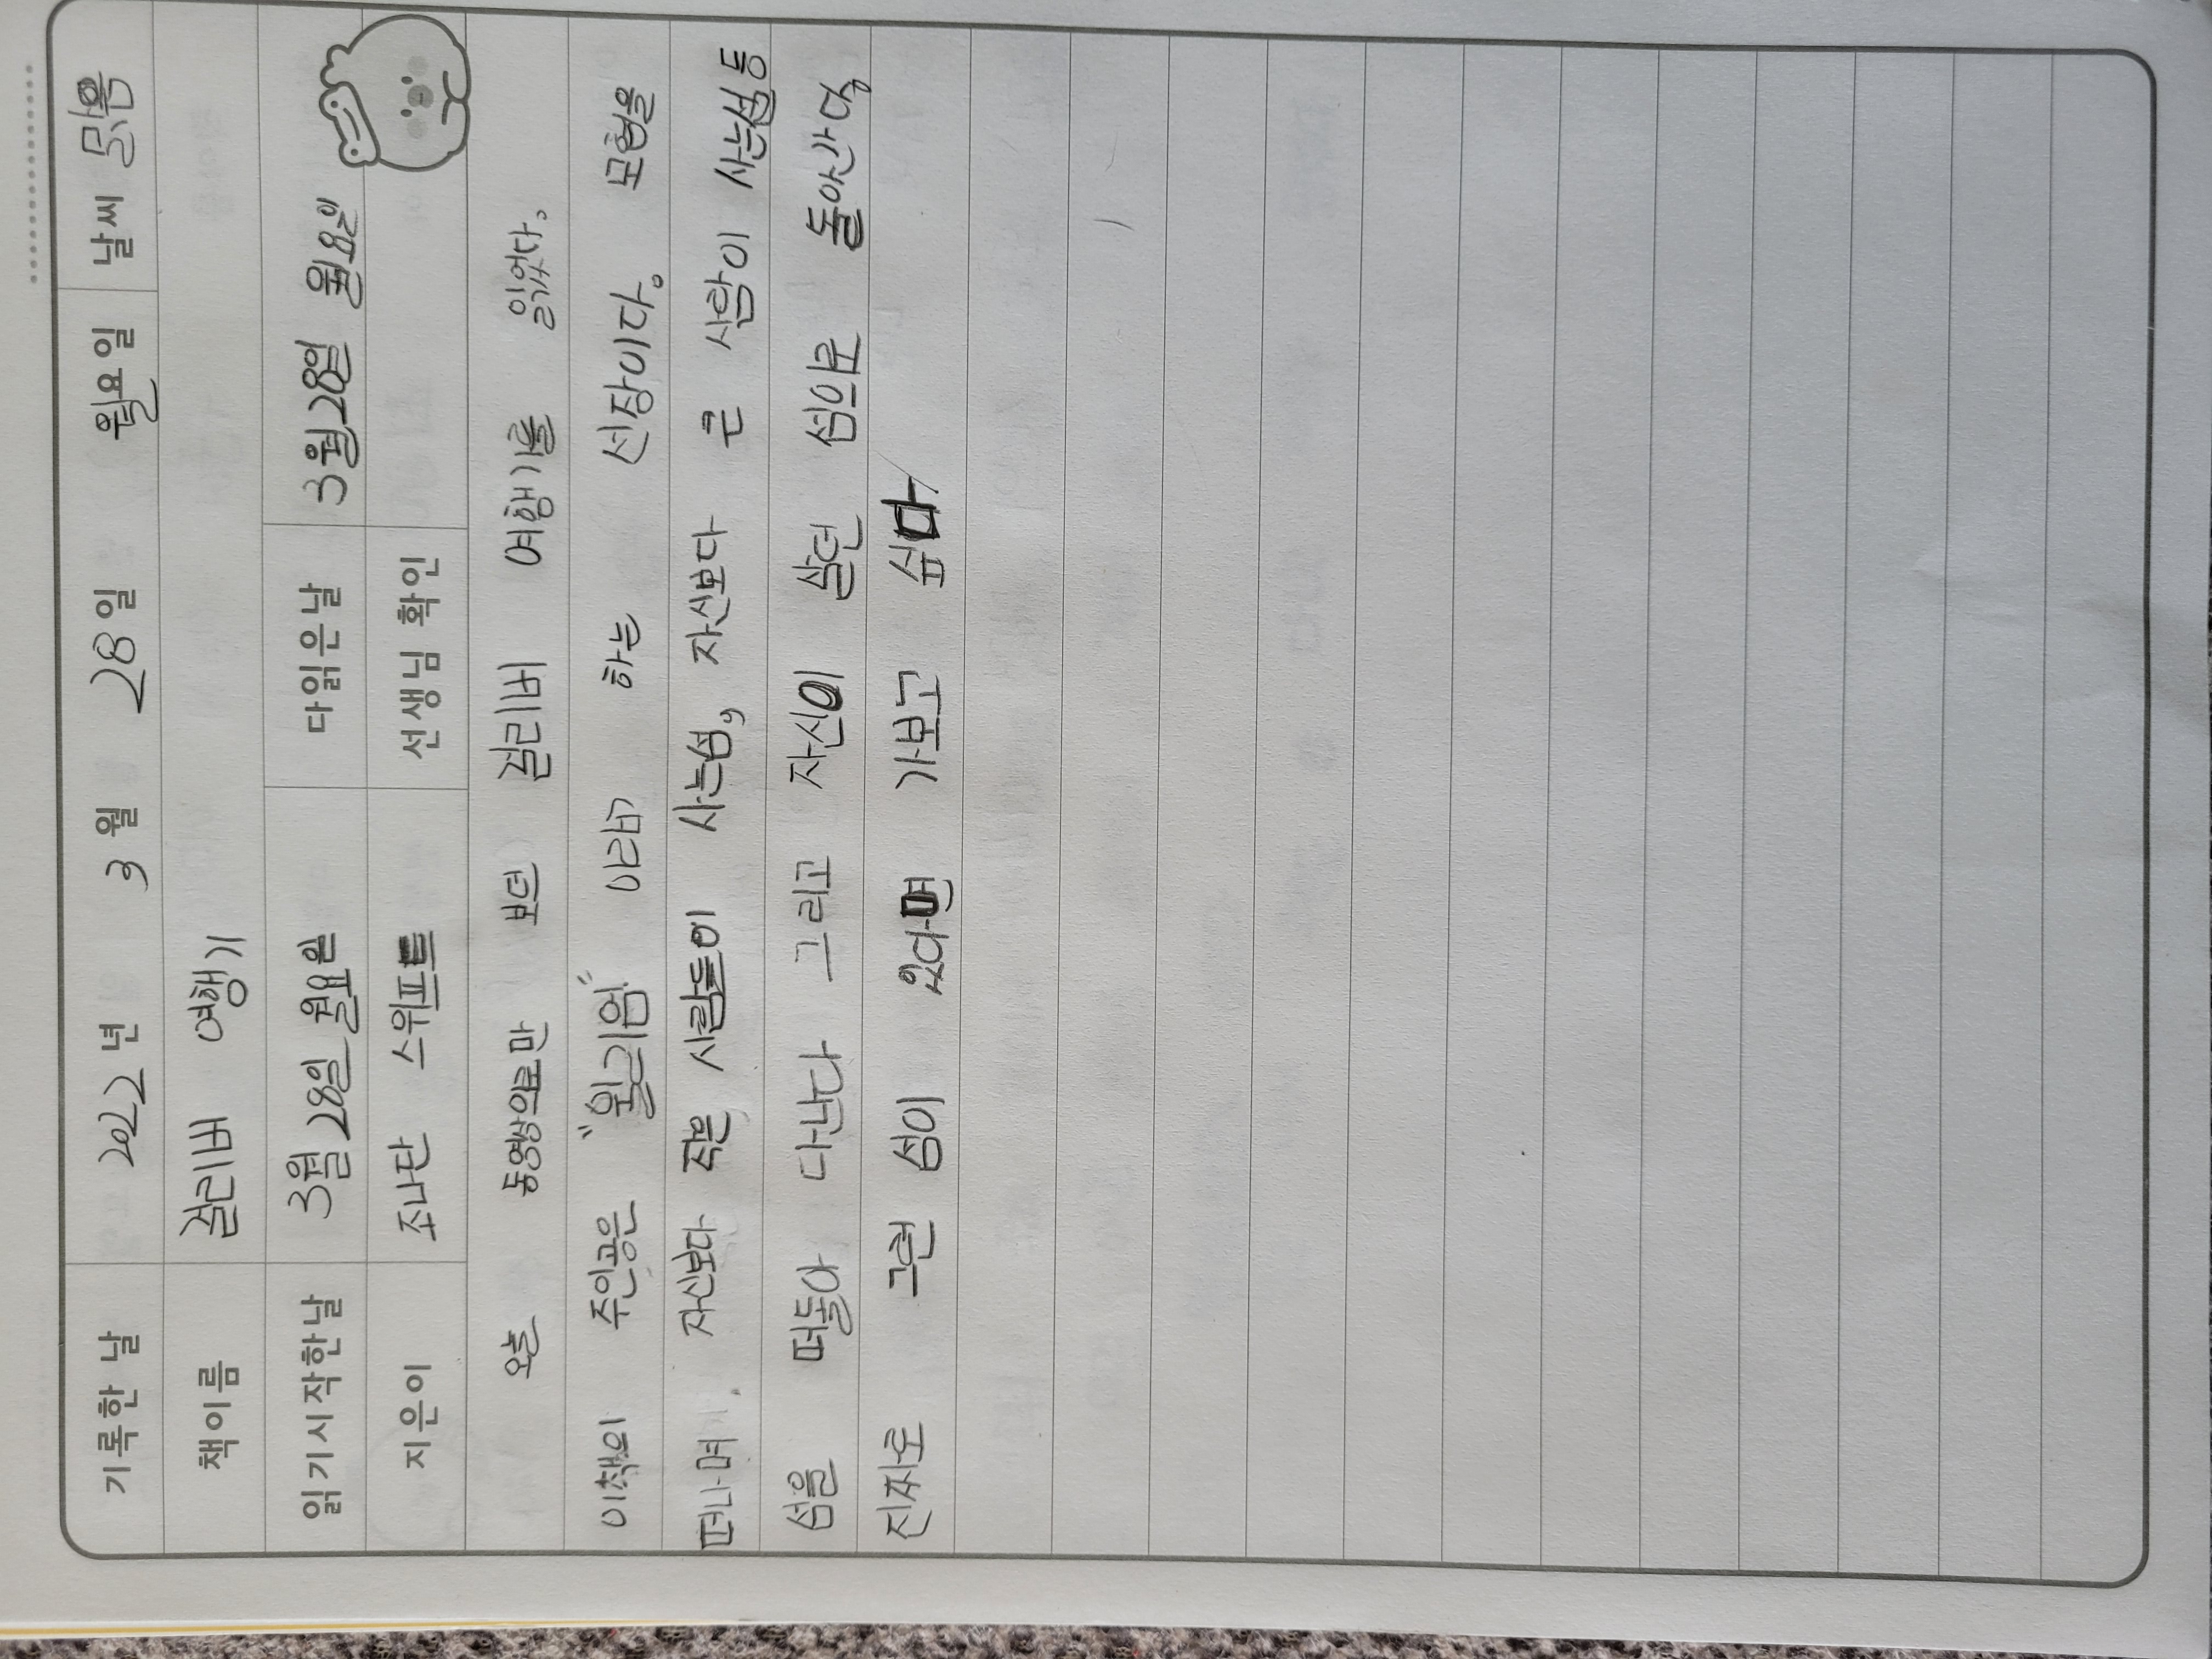 기록한 날 2022 년 3 월 28 일 월요일 날씨 맑음
책이름 걸리버 여행기
읽기시작한날 3월 28일 월요일 다읽은날 3월 28일 월요일
지은이 조나단 스위프트 선생님 확인
오늘 동영상의로만 보던 걸리버 여행기를 읽었다.
이책의 주인공은 "윌리엄" 이라고 하는 선장이다. 모험을
떠나며. 자신보다 작은 사람들이 사는섬, 자신보다 큰 사람이 사는섬 등
섬을 떠돌아 다닌다 그리고 자신이 살던 섬의로 돌아간다.
진짜로 그런 섬이 있다면 가보고 싶다